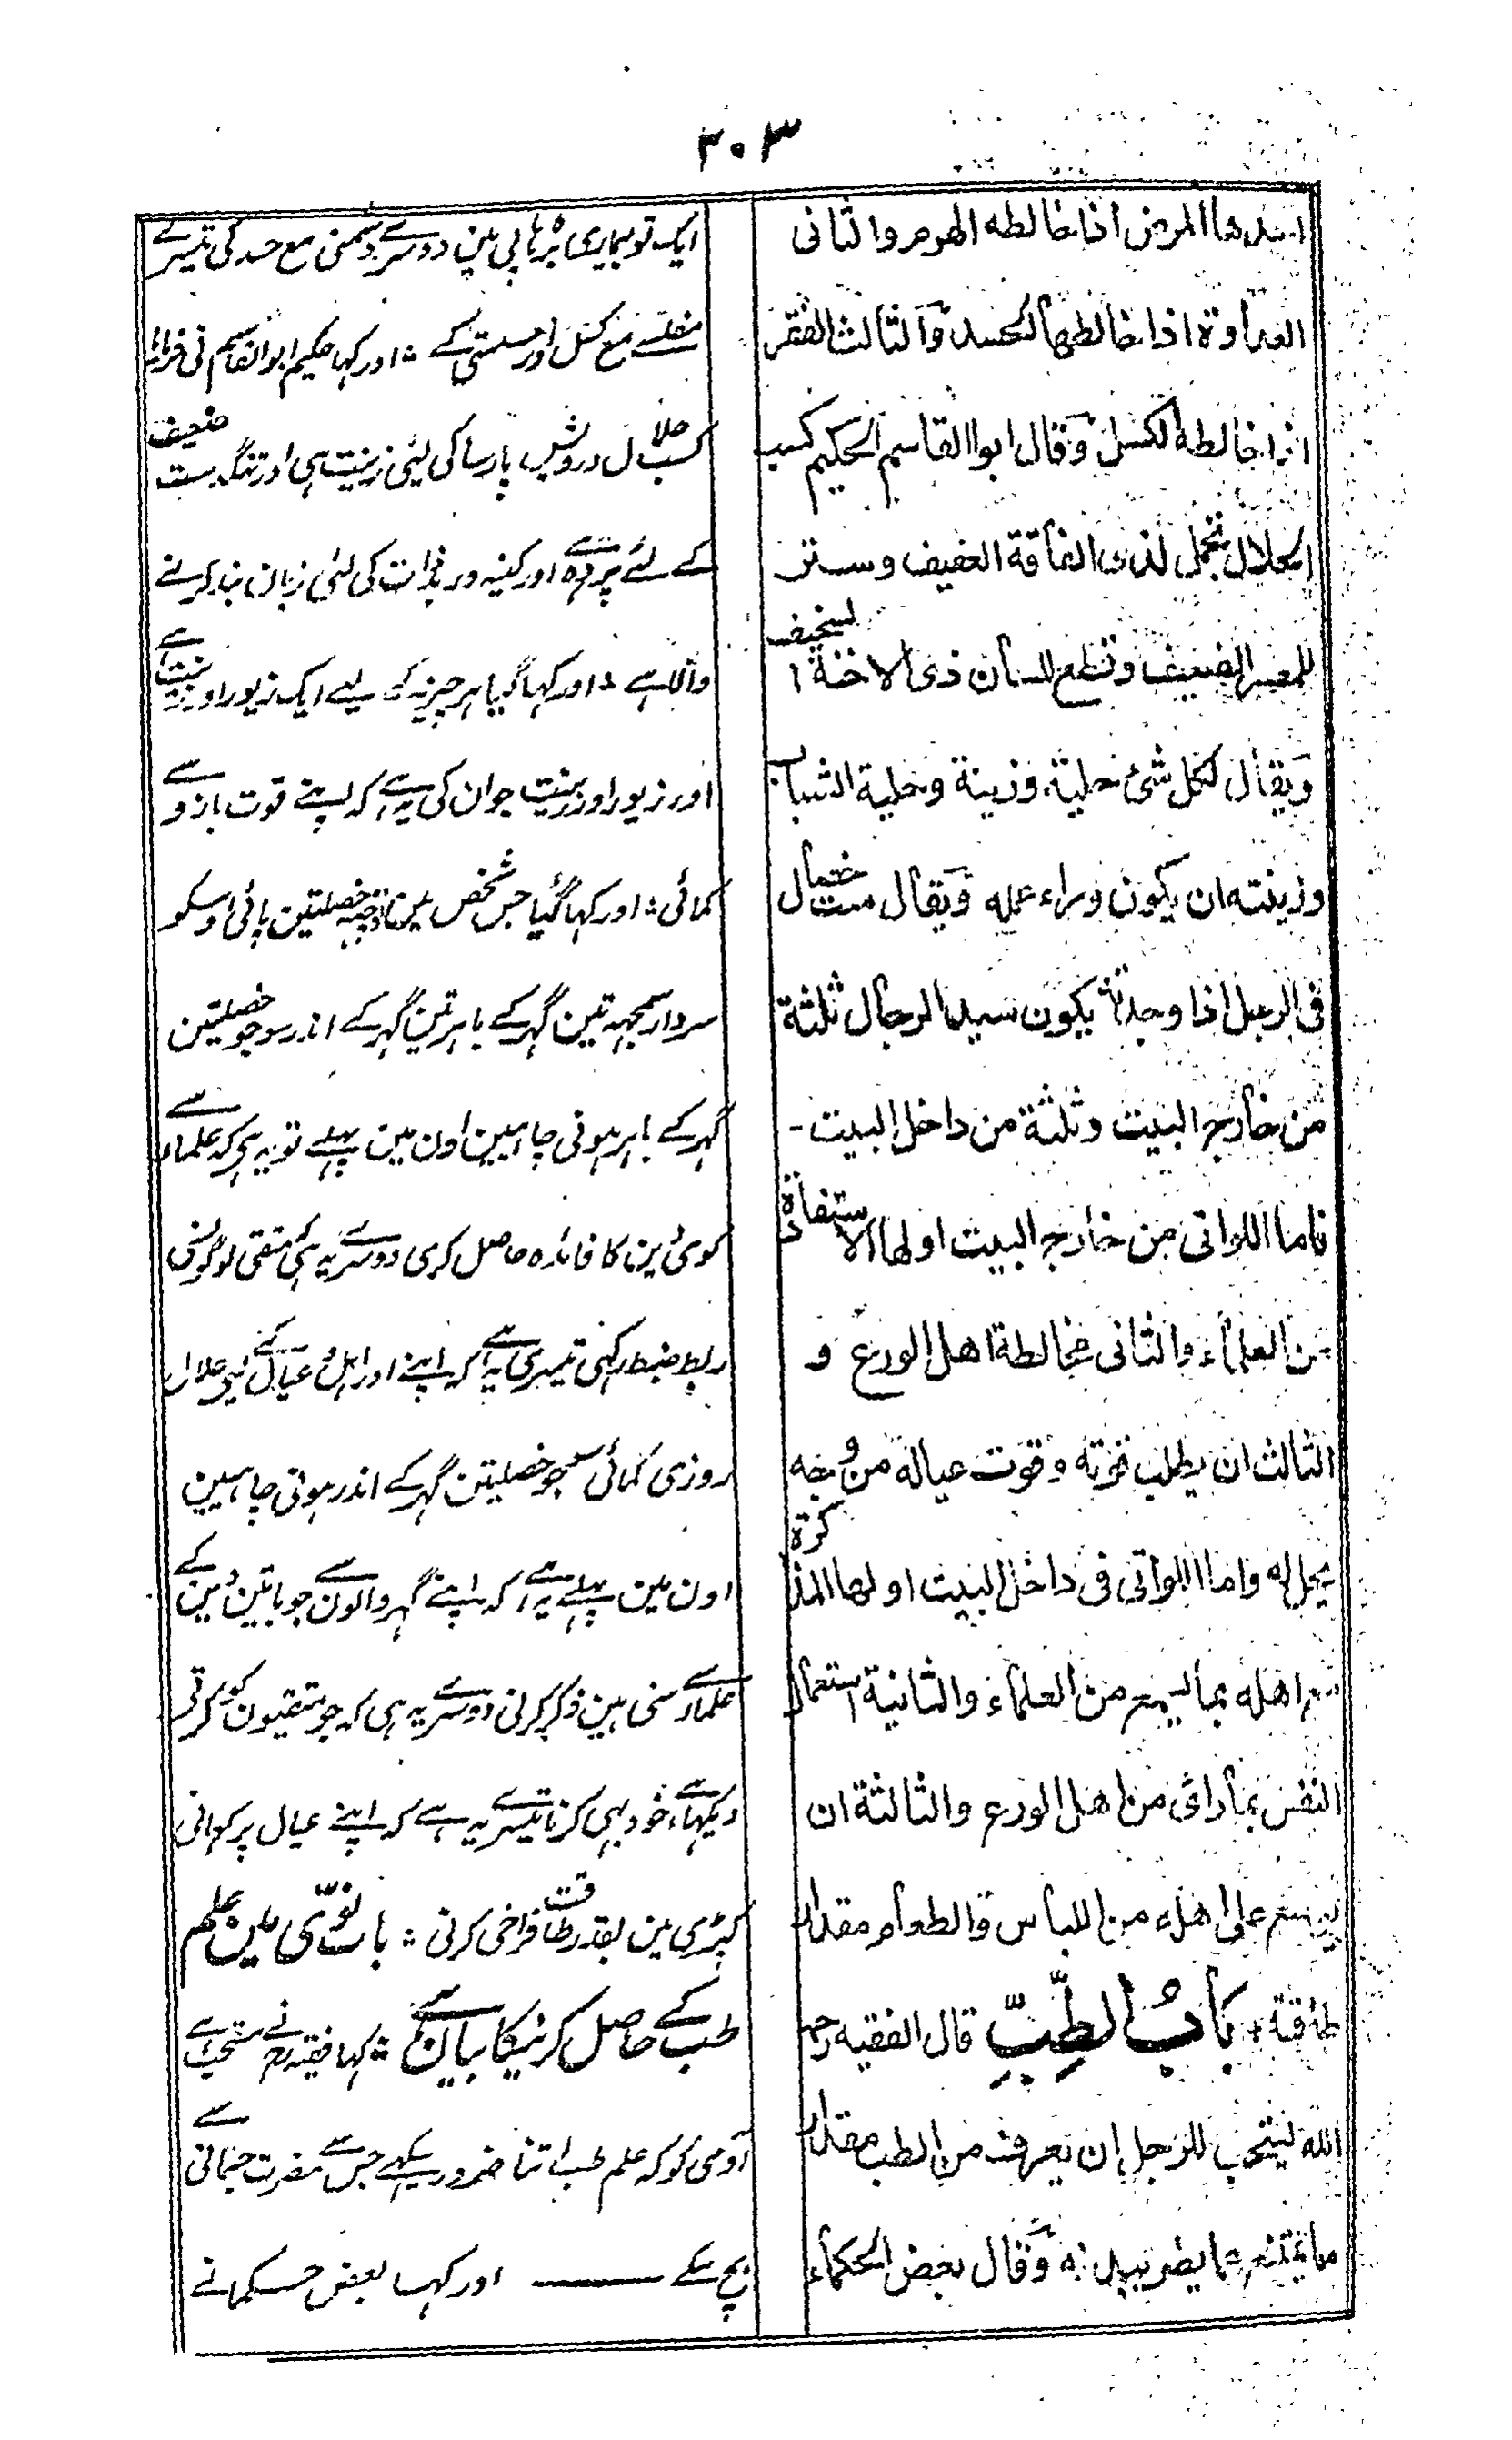 ۳۰۳
احدها المرض اذا خالطه الهرم والثانی
العداوة اذا خالطها الحسد والثالث الفقر
اذا خالطه الکسل وقال ابوا القاسم الحکیم کسب
الحلال تجمل لذی الفاقة العفیف وستر
للمعسر الضعیف وقطع للسان ذی الاحنة السخیف
ویقال لکل شئ حلیة وزینة وحلیة الشباب
وزینته ان یکون وراء عمله ویقال ست خصال
فی الرجل اذا وجدتها یکون سید الرجال ثلثة
من خارج البیت وثلثة من داخل البیت -
فاما اللواتی من خارج البیت اولها الاستفادة
من العلماء والثانی مخالطة اهل الورع و
الثالث ان یطلب قوته وقوت عیاله من وجه
یحل له واما اللواتی فی داخل البیت اولها المذاکرة
مع اهله بما لیسمع من العلماء والثانیة استعمال
النفس بما رای من اهل الورع والثالثة ان
یوسع علی اهله من اللباس والطعام مقدار
طاقته ؞ بَابُ الطِّبِّ قال الفقیه رحمه
الله یستحب للرجل ان یعرف من الطب مقدار
ما یمتنع عما یضر ببدنه وقال بعض الحکماء
ایک تو بیماری بڑہاپی مین دوسرے دشمنی مع حسد کی تیسرے
مفلسے مع کسل اور سستی کے ؞ اور کہا حکیم ابوالقاسم نی فرمایا
کسب حلال درویش پارسا کی لئی زینت ہی اور تنگدست ضعیف
کے لئے پردہ ہے اور کینہ ور بدذات کی لئی زبان بند کرنے
والا ہے ؞ اور کہا گیا ہر چیز کے لیے ایک زیور اور زینت ہے
اور زیور اور زینت جوان کی یہ ہے کہ اپنے قوت بازو سے
کمائی ؞ اور کہا گیا جس شخص مین تو چہہ خصلتین پائی اوسکو
سردار سمجہہ تین گہر کے باہر تین گہر کے اندر سو جو خصلتین
گہر کے باہر ہونی چاہیین اون مین پہلے تو یہ ہی کہ علما سے
کوئی دین کا فائدہ حاصل کری دوسرے یہ ہی کہ متقی لوگونسی
ربط ضبط رکہی تیسری یہ ہے کہ اپنے اور اہل و عیال کے لیی حلال
روزی کمائی سو جو خصلیتن گہر کے اندر ہونی چاہیین
اون مین پہلے یہ ہے کہ اپنے گہر والون سے جو باتین دین کے
علما سے سنی ہین ذکر کرنی دوسرے یہ ہی کہ جو متقیون کو کرتے
دیکہا ہے خود بہی کرنا تیسرے یہ ہے کہ اپنے عیال پر کہانی
کپڑی مین بقدر طاقت فراخی کرنی ؞ باب نوّی مین علم
طب کے حاصل کرنیکا بیان ہے ؞ کہا فقیہ رح نے مستحب ہے
آدمی کو کہ علم طب اتنا ضرور سیکہے جس سے مضرت جسمانی سے
بچ سکے —— اور کہا بعض حکما نے